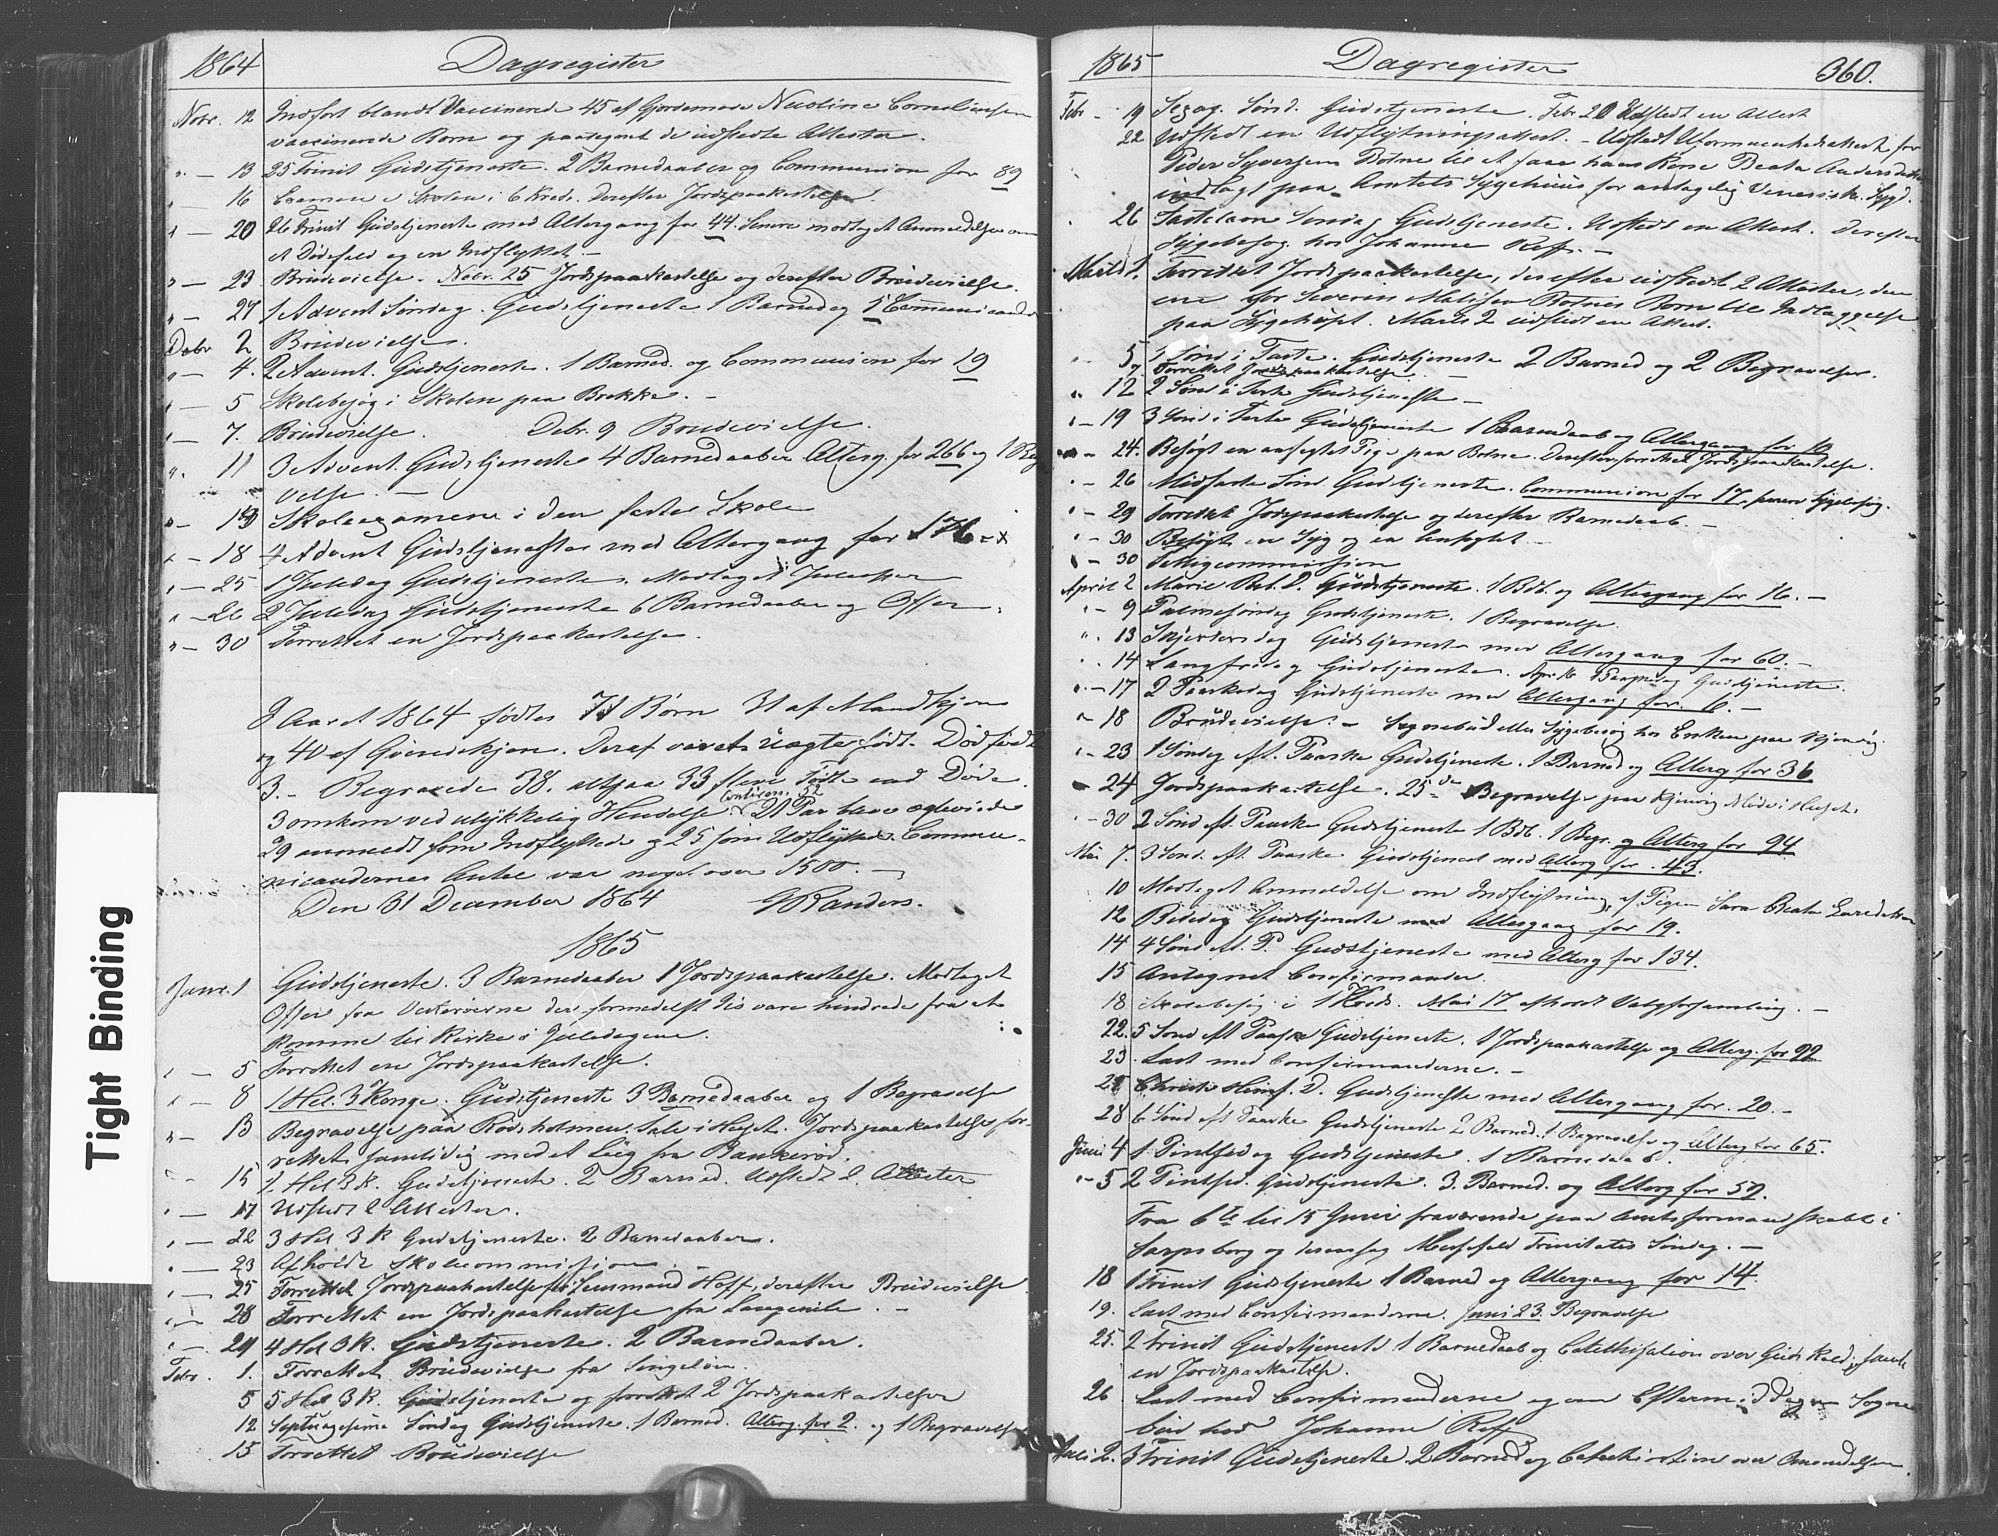 1864 Dagregister
Novr. 12 Indfort blandt Vaccinerede 45 af Gjordemoder Nicoline Corneliussen
vaccinerede Born og paategnet de udstedte Attester.
" — 13 25 Trinit Gudstjeneste. 2 Barnedaaber og Communion for 89
" — 16 Examen i Skolen i 6 Kreds. Derefter Jordspaakastelse.
" — 20 26 Trinit Gudstjeneste med Altergang for 44. Senere modtaget Anmeldelse om
et Dödsfald og en Indflyttet. —
" — 23 Brudevielse. Novr. 25 Jordspaakastelse og derefter Brudevielse.
" — 27 1 Advent Söndag. Gudstjeneste 1 Barned og 5 Communicanter
Decbr 2 Brudevielse.
" — 4. 2 Advent. Gudstjeneste. 1 Barned. og Communion for 19
" — 5 Skolebesög i Skolen paa Brekke. —
" — 7. Brudevielse. Debr. 9 Brudevielse.
" 11 3 Advent. Gudstjeneste 4 Barnedaaber Alterg. for 266 og 1 Begra
velse. —
" — 13 Skoleexamen i den faste Skole
" — 18 4 Advent Gudstjeneste med Altergang for 176
" — 25 1 Juledag Gudstjeneste. Modtaget Juleoffer
" — 26 2 Juledag Gudstjeneste 6 Barnedaaber og Offer.
" — 30 Forrettet en Jordspaakastelse.
I Aaret 1864 fodtes 71 Börn 31 af Mandkjön
og 40 af Qvindekjön. Deraf vare uægte födt. Dödfödt
3. — Begravede 38. altsaa 33 flere Födte end Döde.
3 omkom ved ulykkelig Hendelse. Confirm. 52 21 Par bleve egteviede
29 anmeldt som Indflyttede og 25 som Udflyttede. Commu-
nicandernes Antal var noget over 1500. —
Den 31 December 1864 Randers.
1865
Janr. 1 Gudstjeneste. 3 Barnedaaber 1 Jordspaakastelse. Modtaget
Offer fra Vesteröerne der formedelst Iis vare hindrede fra at
komme til Kirke i Juledagene.
" — 5 Forrettet en Jordspaakastelse.
" — 8 1 Hel. 3 Konge. Gudstjeneste 3 Barnedaaber og 1 Begravelse
" — 13 Begravelse paa Rödsholmen. Tale i Huset. Jordspaakastelse for-
rettet samtidig med et Liig fra Bankeröd.
" — 15 2 Hel 3 K. Gudstjeneste. 2 Barned. Udstedt 2 Attester
" — 17 Udstedt 2 Attester.
" — 22 3 Hel 3 K Gudstjeneste. 2 Barnedaaber.
" — 23 Afholdt Skolecommission. —
" — 25 Forrettet Jordspaakastelse for Lensmand Hoff, derefter Brudevielse
" — 28 Forrettet en Jordspaakastelse fra —
" — 29 4 Hel 3 K. Gudstjeneste. 2 Barnedaaber.
Febr. 1. Forrettet Brudevielse fra
5 5 Hel 3 K. Gudstjeneste og forrettet 2 Jordspaakastelser
12 Septuagesima Söndag Gudstjeneste. 1 Barned. Alterg. for 2. og 1 Begravelse
15 Forrettet Brudevielse
1865 Dagregister 360.
Febr — 19 Sexag. Sönd. Gudstjeneste. Febr 20 Udstedt en Attest
22 Udstedt en Udflytningsattest. — Udstedt Uformuenhedsattest for
Peder Syversen Botne til at faae hans Kone Beata Andersdatter
indlagt paa Amtets Sygehuus for antagelig Venerisk Sygd.
26 Fastelavn Söndag Gudstjeneste. Udstedt en Attest. Derefter
Sygebesög hos Johanne Röf. —
Marts 1. Forrettet Jordspaakastelse, derefter udstedt 2 Attester, den
ene for Severin Botnes Born til Indlæggelse
paa Sygehuset. Marts 2 udstedt en Attest.
" 5 1 Sönd i Faste. Gudstjeneste 2 Barned og 2 Begravelser.
" 7 Forrettet Jordspaakastelse.
" 12 2 Sönd i Faste Gudstjeneste —
" — 19 3 Sönd i Faste Gudstjeneste 1 Barnedaab og Altergang for 10
— 24. Besögt en anfegtet Pige paa Botne. Derefter forrettet Jordspaakastelse.
" — 26 Midfaste Sönd Gudstjeneste. Communion for 17, Sygebesög.
" — 29 Forrettet Jordspaakastelse og derefter Barnedaab. —
" — 30 Besögt en Syg og en anfegtet. —
" — 30 Fattigcommission
April 2 Marie Beb. D. Gudstjeneste. 1 Bdb. og Altergang for 16. —
" — 9 Palmesöndag Gudstjeneste. 1 Begravelse.
" 13 Skjertorsdag Gudstjeneste med Altergang for 60. —
" 14 Langfredag Gudstjeneste. Apr 16 Paaskedag Gudstjeneste.
" — 17 2 Paaskedag Gudstjeneste med Altergang for. 6. —
" 18 Brudevielse. — Sognebud eller Sygebesög hos Enken paa Kjenvig.
" — 23 1 Söndag eft. Paaske Gudstjeneste. 1 Barned og Alterg for 36
— 24 Jordspaakastelse. 25de Begravelse paa Kjenvig Tale i Huset.
" — 30 2 Sönd eft. Paaske Gudstjeneste 1 Bdb. 1 Begr. og Alterg for 94
Mai 7. 3 Sönd. eft. Paaske Gudstjenest med Alterg for. 43.
10 Modtaget Anmeldelse om Indflytning af Pigen Sara Beata Larsdatter
12 Bededag Gudstjeneste med Altergang for 19.
14 4 Sönd eft. P. Gudstjeneste med Alterg for 134.
15 Antegnet Confirmander.
18 Skolebesög i 1 Kreds. Mai 17 afholdt Valgforsamling. —
22. 5 Sönd eft Paaske Gudstjeneste. 1 Jordspaakastelse og Alterg. for 92
23. Læst med Confirmanderne. —
25 Christi Himf. D. Gudstjeneste med Altergang for. 20. —
28 6 Sönd eft Paaske Gudstjeneste 2 Barned. 1 Begravelse og Alterg for 65.
Juni 4 1 Pintsedag Gudstjeneste. 1 Barnedaab.
" — 5 2 Pintsed. Gudstjeneste. 3. Barned. og Alterg for 59.
Fra 6te til 15 Juni fraværende paa Amtsformandskabet i
Sarpsborg og desaarsag Messefald Trinitatis Söndag. —
18 1 Trinit Gudstjeneste 1 Barned og Altergang for 14.
19. Læst med Confirmanderne. Juni 23. Begravelse
25. 2 Trinit Gudstjeneste 1 Barnedaab og Catekhisation over Guds Kald, samt
en Jordspaakastelse.
26 Læst med Confirmanderne og om Efterm. i Sogne
bud hos Johanne Röf
Juli 2. 3 Trinit Gudstjeneste. 2 Barned og Catechisation over Omvendelsen.
Tight Binding